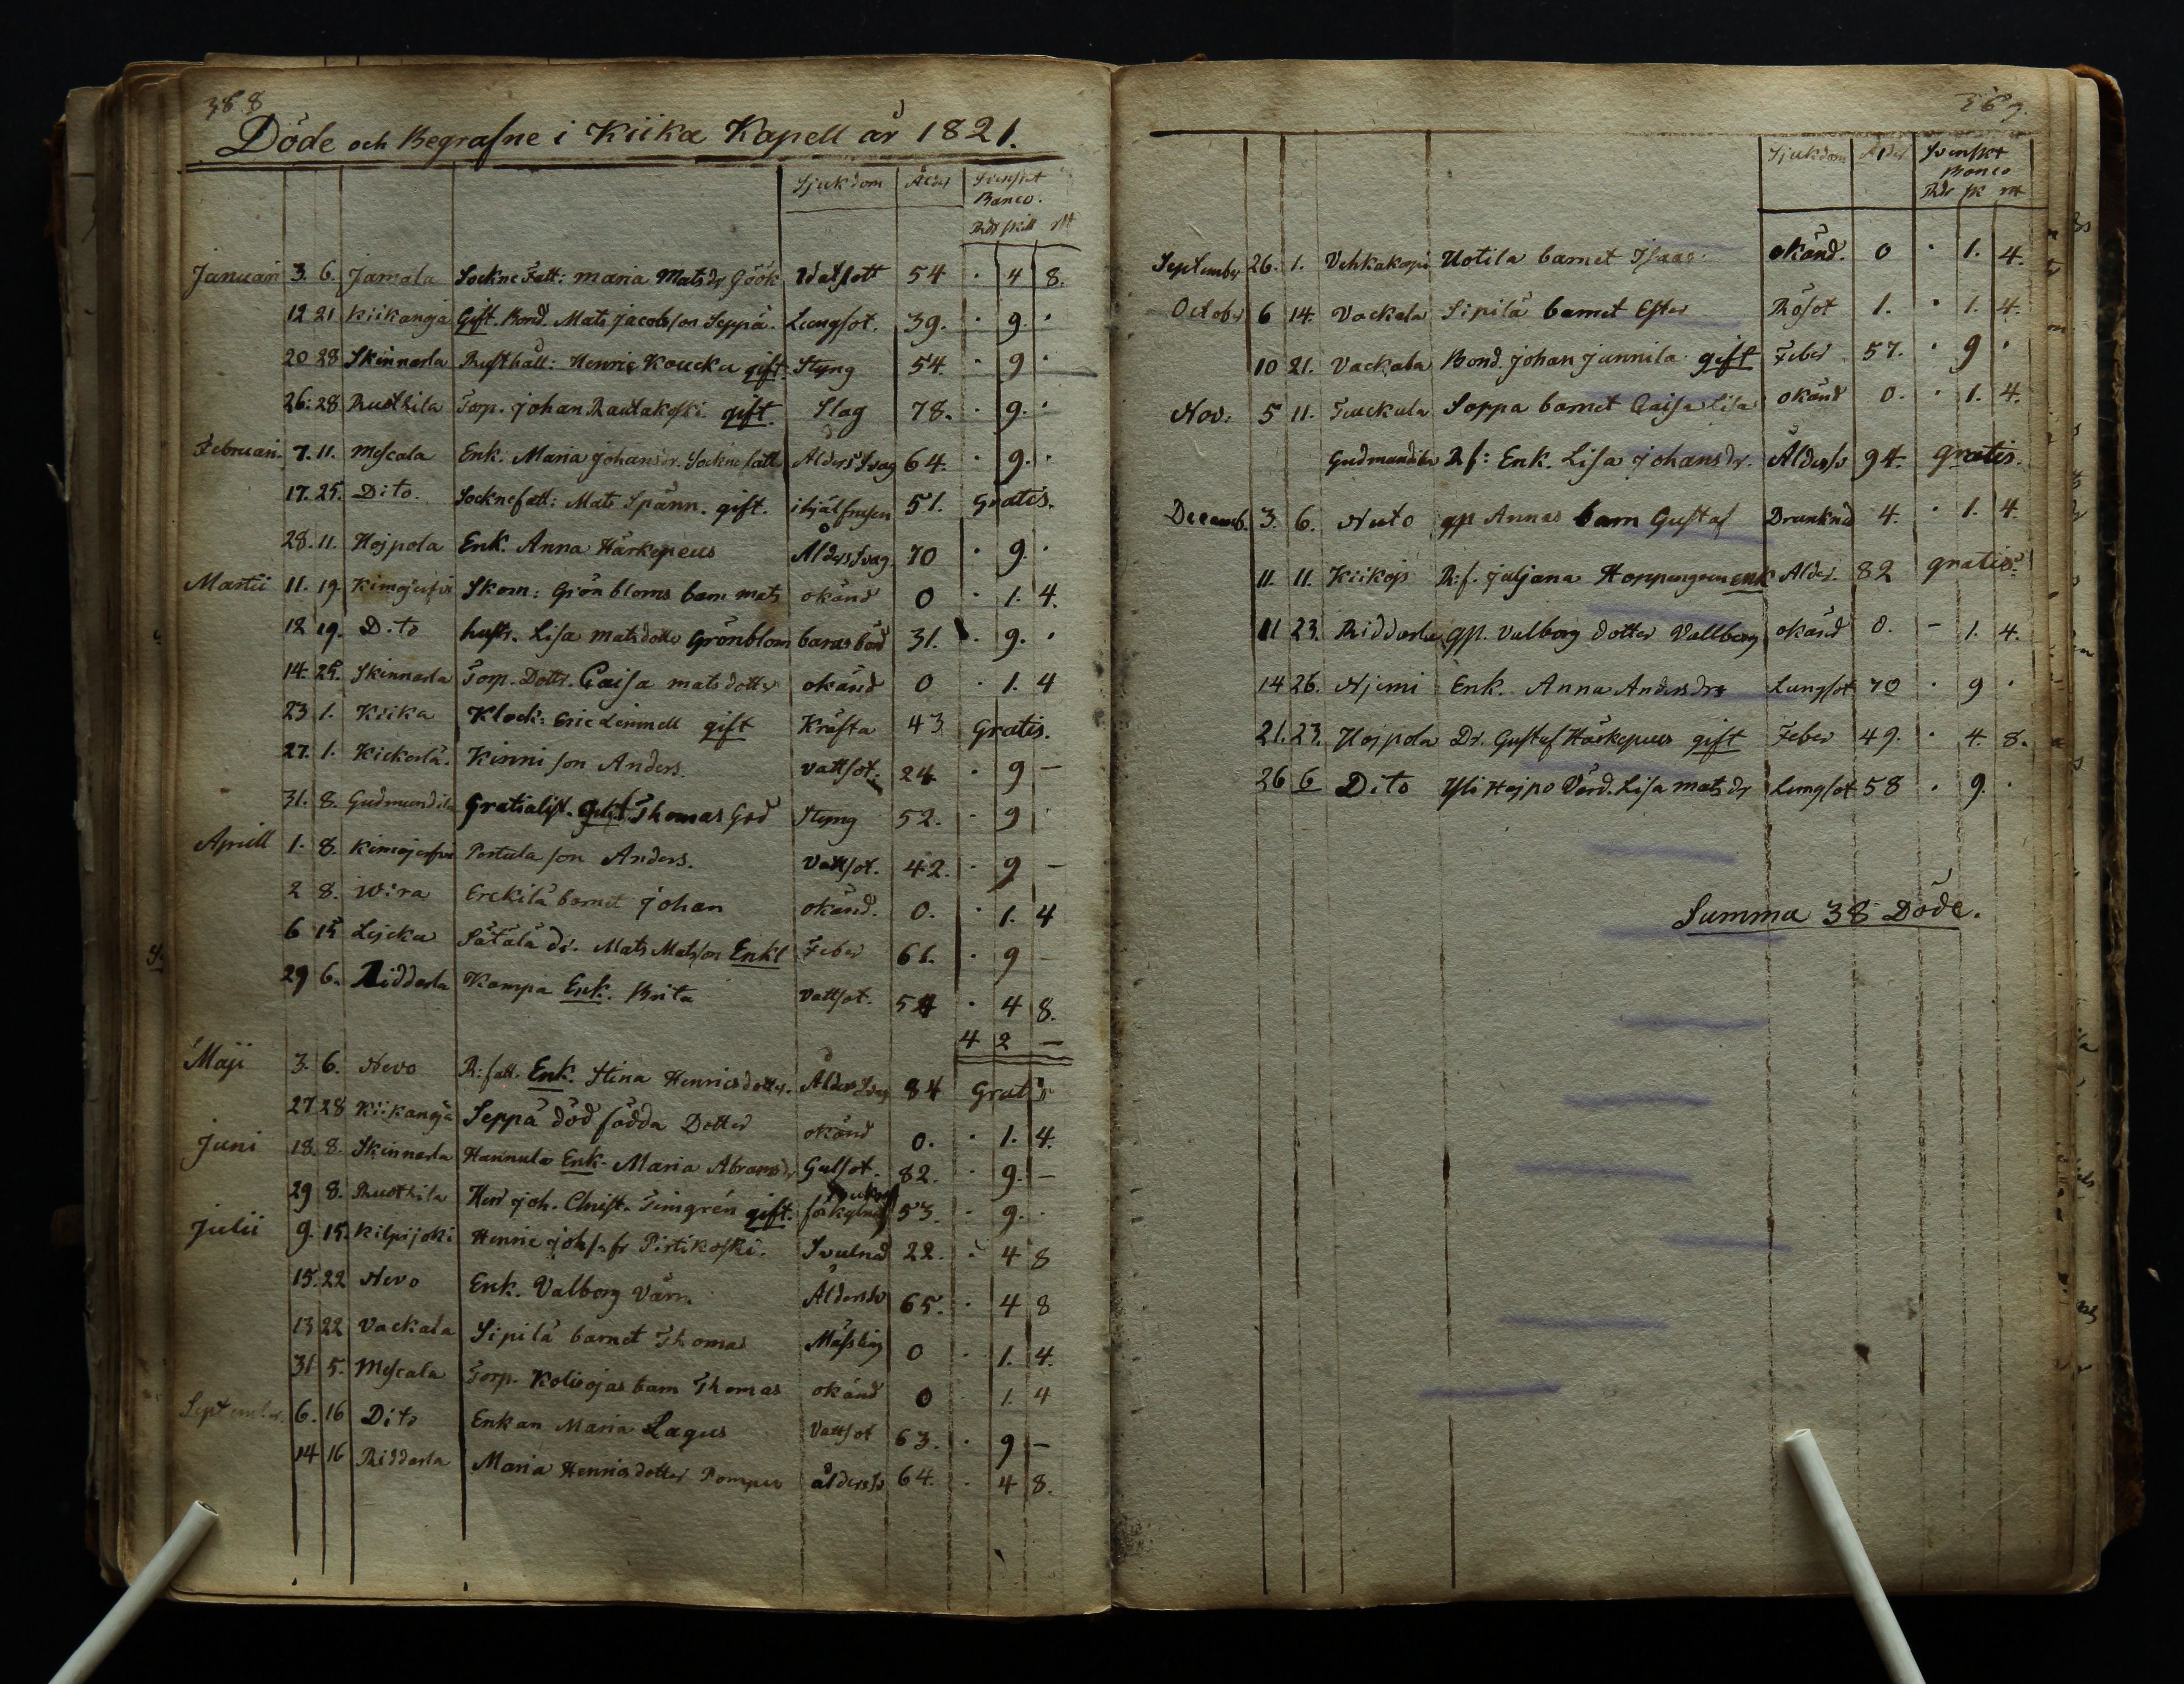 368
Döde och Begrafne i Kiika Kapell år 1821.
Sjukdom Ålder Svenskt
Banco.
Rdr skill
Januari 3. 6. Jamala Sockne Fatt: Maria Matsdr Göök Watsott 54 . 4 8.
12 21 Kiikanoja Gift. Bond. Mats Jacobsson Seppä. Lungsot. 39. . 9. .
20 28 Skinnarla Rusthåll: Henric Koucku gift. Styng 54. . 9 .
26. 28 Ruothila Torp. Johan Rautakoski gift. Slag 78. . 9. .
Februari. 7. 11. Mescala Enk. Maria Johansdr. Sockne fatt. Ålders Svag 64. . 9. .
17. 25. Dito. Socknefatt: Mats Spänn. gift. ihjälfrusen 51. Gratis.
28. 11. Hojpola Enk. Anna Härkepeus Ålders Svag. 70 . 9. .
Martii 11. 19. Kimojerfvi Skom: Grönbloms barn Mats okänd 0 . 1. 4.
12 19. Dito hustr. Lisa Matsdotter Grönblom barasbörd 31. . 9. .
14. 25. Skinnarla Torp. Dottr. Caisa Matsdotter okänd 0 . 1. 4
23 1. Kiika Klock: Eric Leinmell gift Kräfta 43 Gratis.
27. 1. Kickerlä. Kinni son Anders. Vattsot. 24. . 9 –
31. 8. Gudmundila Gratialist. Gift. Thomas God Styng 52. . 9
Aprill 1. 8. Kimojerfvi Pertula son Anders. Vattsot. 42. . 9 –
2 8. Wira Erckilä barnet Johan okänd. 0. . 1. 4
6 15 Lejcku Sätälä dr. Mats Matsson Enkl Feber 61. . 9 –
29 6. Ridderla Kampa Enk. Brita Vattsot. 54 . 4 8.
4 2 –
Maji 3. 6. Nevo R: fatt. Enk. Stina Henricsdotter. Ålders Svag 84 Gratis
27 28 Kiikanoja Seppä död födda Dotter okänd 0. . 1. 4.
Juni 18. 8. Skinnarla Hannula Enk. Maria Abramsdr Gulsot. 82. . 9. –
29 8. Ruothila Herr Joh. Christ. Timgrén gift. förkylnd 53. . 9. .
Julii 9. 15. Kilpijoki Henric Johs. fr Pirtikoski. Svulnad 22. . 4 8
15. 22 Nevo Enk. Valborg Värn. Åldersv 65. . 4 8
13 22 Vackala Sipilä barnet Thomas Mässling 0 . 1. 4.
31 5. Mescala Torp. Koliojas barn Thomas okänd 0 1. 4
September. 6. 16 Dito Enkan Maria Lagus Vattsot 63. . 9 –
14 16 Ridderla Maria Henricsdotter Pompu åldersv 64. . 4 8.
369.
Sjukdom Ålder Svenskt
Banco
Rdr sk
September 26. 1. Vehkakorpi Uotila barnet Isaac. okänd. 0 . 1. 4.
October 6 14. Vackala Sipilä barnet Ester Rösot 1. . 1. 4.
10 21. Vackala Bond. Johan Junnila gift Feber 57. . 9 .
Nov: 5 11. Tuuckula Soppa barnet Caisa Lisa okänd 0. . 1. 4.
Gudmundila R f: Enk. Lisa Johansdr. Åldersv 94. gratis.
Decemb. 3. 6. Nuto qp Annas barn Gustaf Drunknd 4. . 1. 4.
11. 11. Kiikojs R: f. Juljana Hoppengren enk Ålder. 82 gratis.
11 23. Ridderla qp. Valborg dotter Vallborg okänd 0. – 1. 4.
14 26. Njemi Enk. Anna Andersdr Lungsot 70 . 9 .
21. 23. Hojpola Dr. Gustaf Härkepeus gift Feber 49. . 4. 8.
26 6 Dito Yli Hojpo Värd. Lisa Matsdr Lungsot 58 . 9. .
Summa 38 Döde.